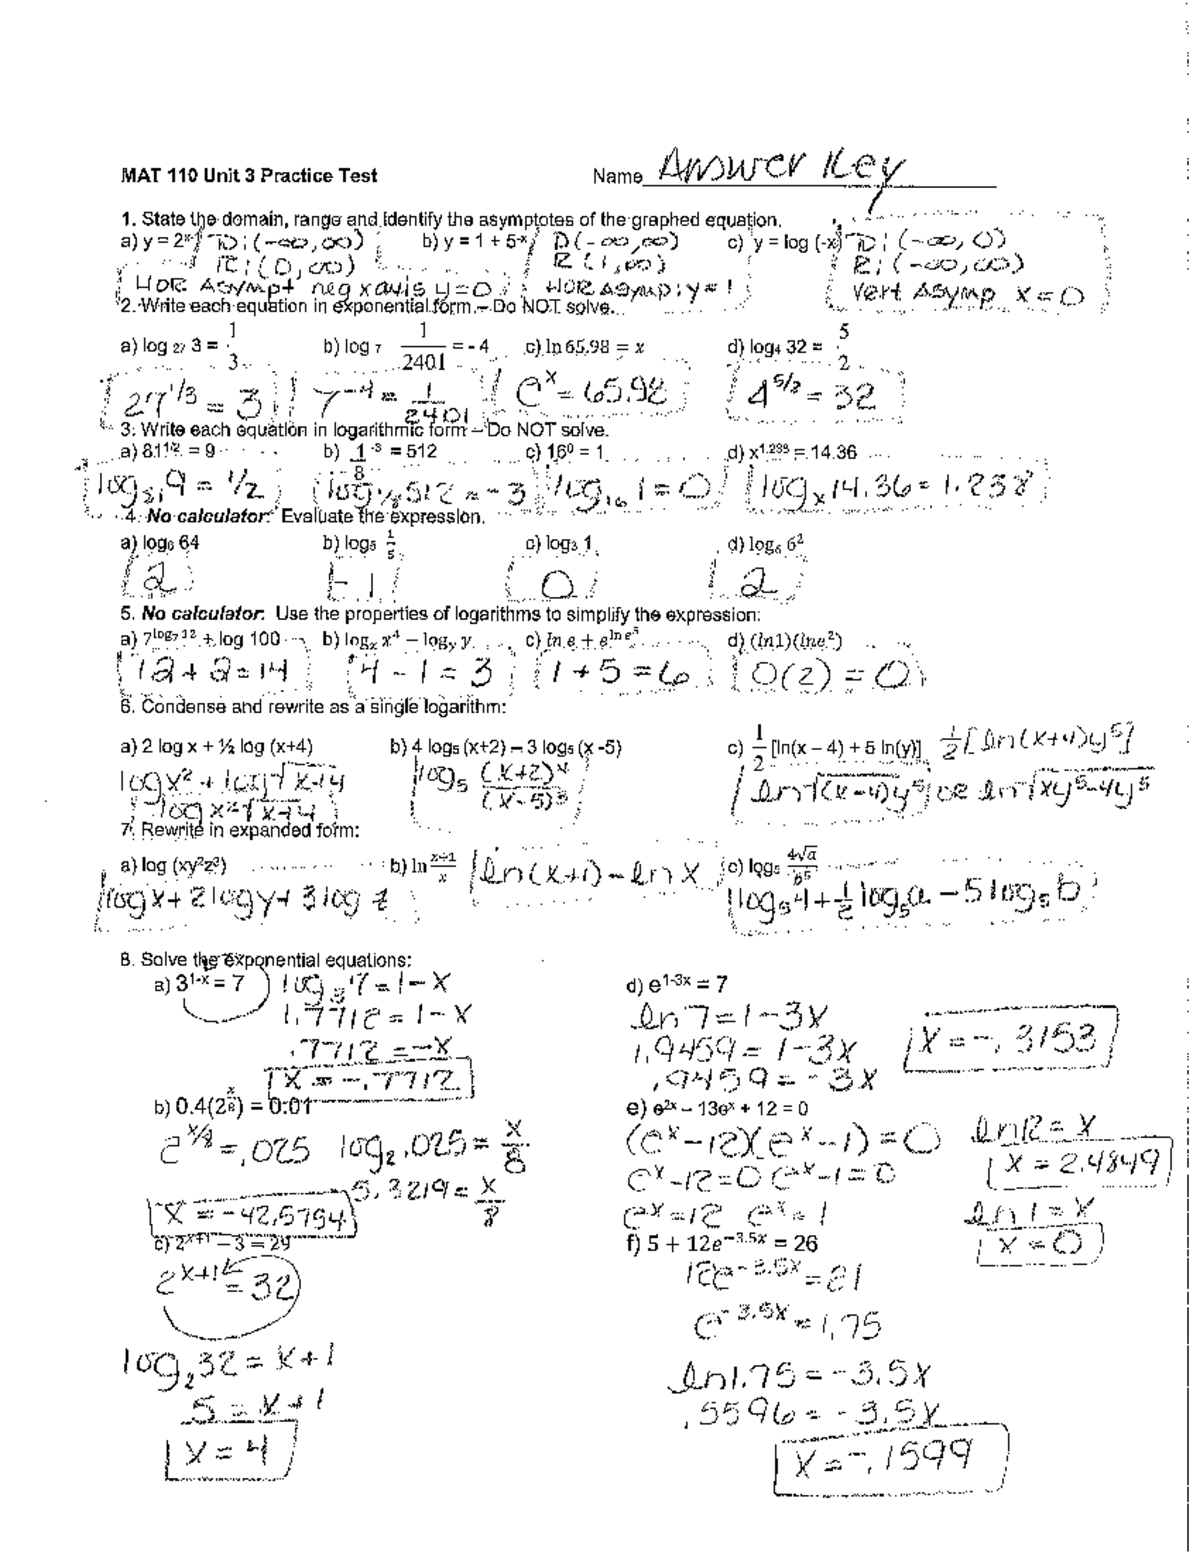 MAT 110 Unit 3 Practice Test Name Answer Key
1. State the domain, range and identify the asymptotes of the graphed equation.
a) y = 2ˣ⁻¹ D: (-∞, ∞) b) y = 1 + 5⁻ˣ D (-∞, ∞) c) y = log (-x) D: (-∞, 0)
R: (0, ∞) R (1, ∞) R: (-∞, ∞)
HOR Asympt neg x axis y = 0 HOR Asymp: y = 1 Vert Asymp x = 0
2. Write each equation in exponential form – Do NOT solve.
a) log ₂₇ 3 = 1/3 b) log ₇ 1/2401 = - 4 c) ln 65.98 = x d) log₄ 32 = 5/2
27^1/3 = 3 7^-4 = 1/2401 e^x = 65.98 4^5/2 = 32
3. Write each equation in logarithmic form – Do NOT solve.
a) 81^1/2 = 9 b) 1/8 ^-3 = 512 c) 16⁰ = 1 d) x^1.238 = 14.36
log₈₁ 9 = 1/2 log 1/8 512 = -3 log₁₆ 1 = 0 log x 14.36 = 1.238
4. No calculator: Evaluate the expression.
a) log₈ 64 b) log₅ 1/5 c) log₃ 1 d) log₆ 6²
2 -1 0 2
5. No calculator: Use the properties of logarithms to simplify the expression:
a) 7^log₇ 12 + log 100 b) logₓ x⁴ – log y y c) ln e + e^ln e⁵ d) (ln1)(lne²)
12 + 2 = 14 4 - 1 = 3 1 + 5 = 6 0(2) = 0
6. Condense and rewrite as a single logarithm:
a) 2 log x + ½ log (x+4) b) 4 log₅ (x+2) – 3 log₅ (x -5) c) 1/2 [ln(x – 4) + 5 ln(y)] 1/2 [ln(x+4)y⁵]
log x² + log √x+4 log₅ (x+2)⁴/(x-5)³ ln √(x-4)y⁵ or ln √xy⁵-4y⁵
log x² √x+4
7. Rewrite in expanded form:
a) log (xy²z³) b) ln x+1/x ln(x+1) - ln x c) log₅ 4√a/b⁵
log x + 2 log y + 3 log z log₅ 4 + 1/2 log₅ a - 5 log₅ b
8. Solve the exponential equations:
a) 3^1-x = 7 log₃ 7 = 1 - x d) e^1-3x = 7
1.7712 = 1 - x ln 7 = 1 - 3x
.7712 = -x 1.9459 = 1 - 3x x = -.3153
x = -.7712 .9459 = -3x
b) 0.4(2^x/8) = 0.01 e) e^2x – 13e^x + 12 = 0
2^x/8 = .025 log₂ .025 = x/8 (e^x - 12)(e^x - 1) = 0 ln 12 = x
5.3219 = x/8 e^x - 12 = 0 e^x - 1 = 0 x = 2.4849
x = -42.5754 e^x = 12 e^x = 1 ln 1 = x
c) 2^x+1 – 3 = 29 f) 5 + 12e^−3.5x = 26 x = 0
2^x+1 = 32 12e^-3.5x = 21
e^-3.5x = 1.75
log₂ 32 = x + 1 ln 1.75 = -3.5x
5 = x + 1 .5596 = -3.5x
x = 4 x = -.1599